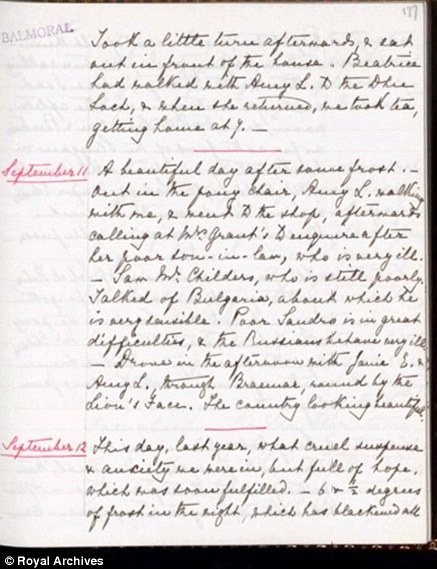 BALMORAL
177
Took a little turn afterwards, & sat
out in front of the house. Beatrice
had walked with Amy L. to the Dhu
Loch, & when she returned, we took tea,
getting home at 7. —
September 11
A beautiful day after some frost. —
Out in the pony chair, Amy L. walking
with me, & went to the shop, afterwards
calling at Mrs Grant's to enquire after
her poor son-in-law, who is very ill.
— Saw Mr Childers, who is still poorly.
Talked of Bulgaria, about which he
is very sensible. Poor Sandro is in great
difficulties, & the Russians behave very ill
— Drove in the afternoon with Janie E. &
Amy L. through Braemar, round by the
Lion's Face. The country looking beautiful.
September 12
This day, last year, what cruel suspense
& anxiety we were in, but full of hope,
which was soon fulfilled. — 6 & ½ degrees
of frost in the night, which has blackened all
© Royal Archives